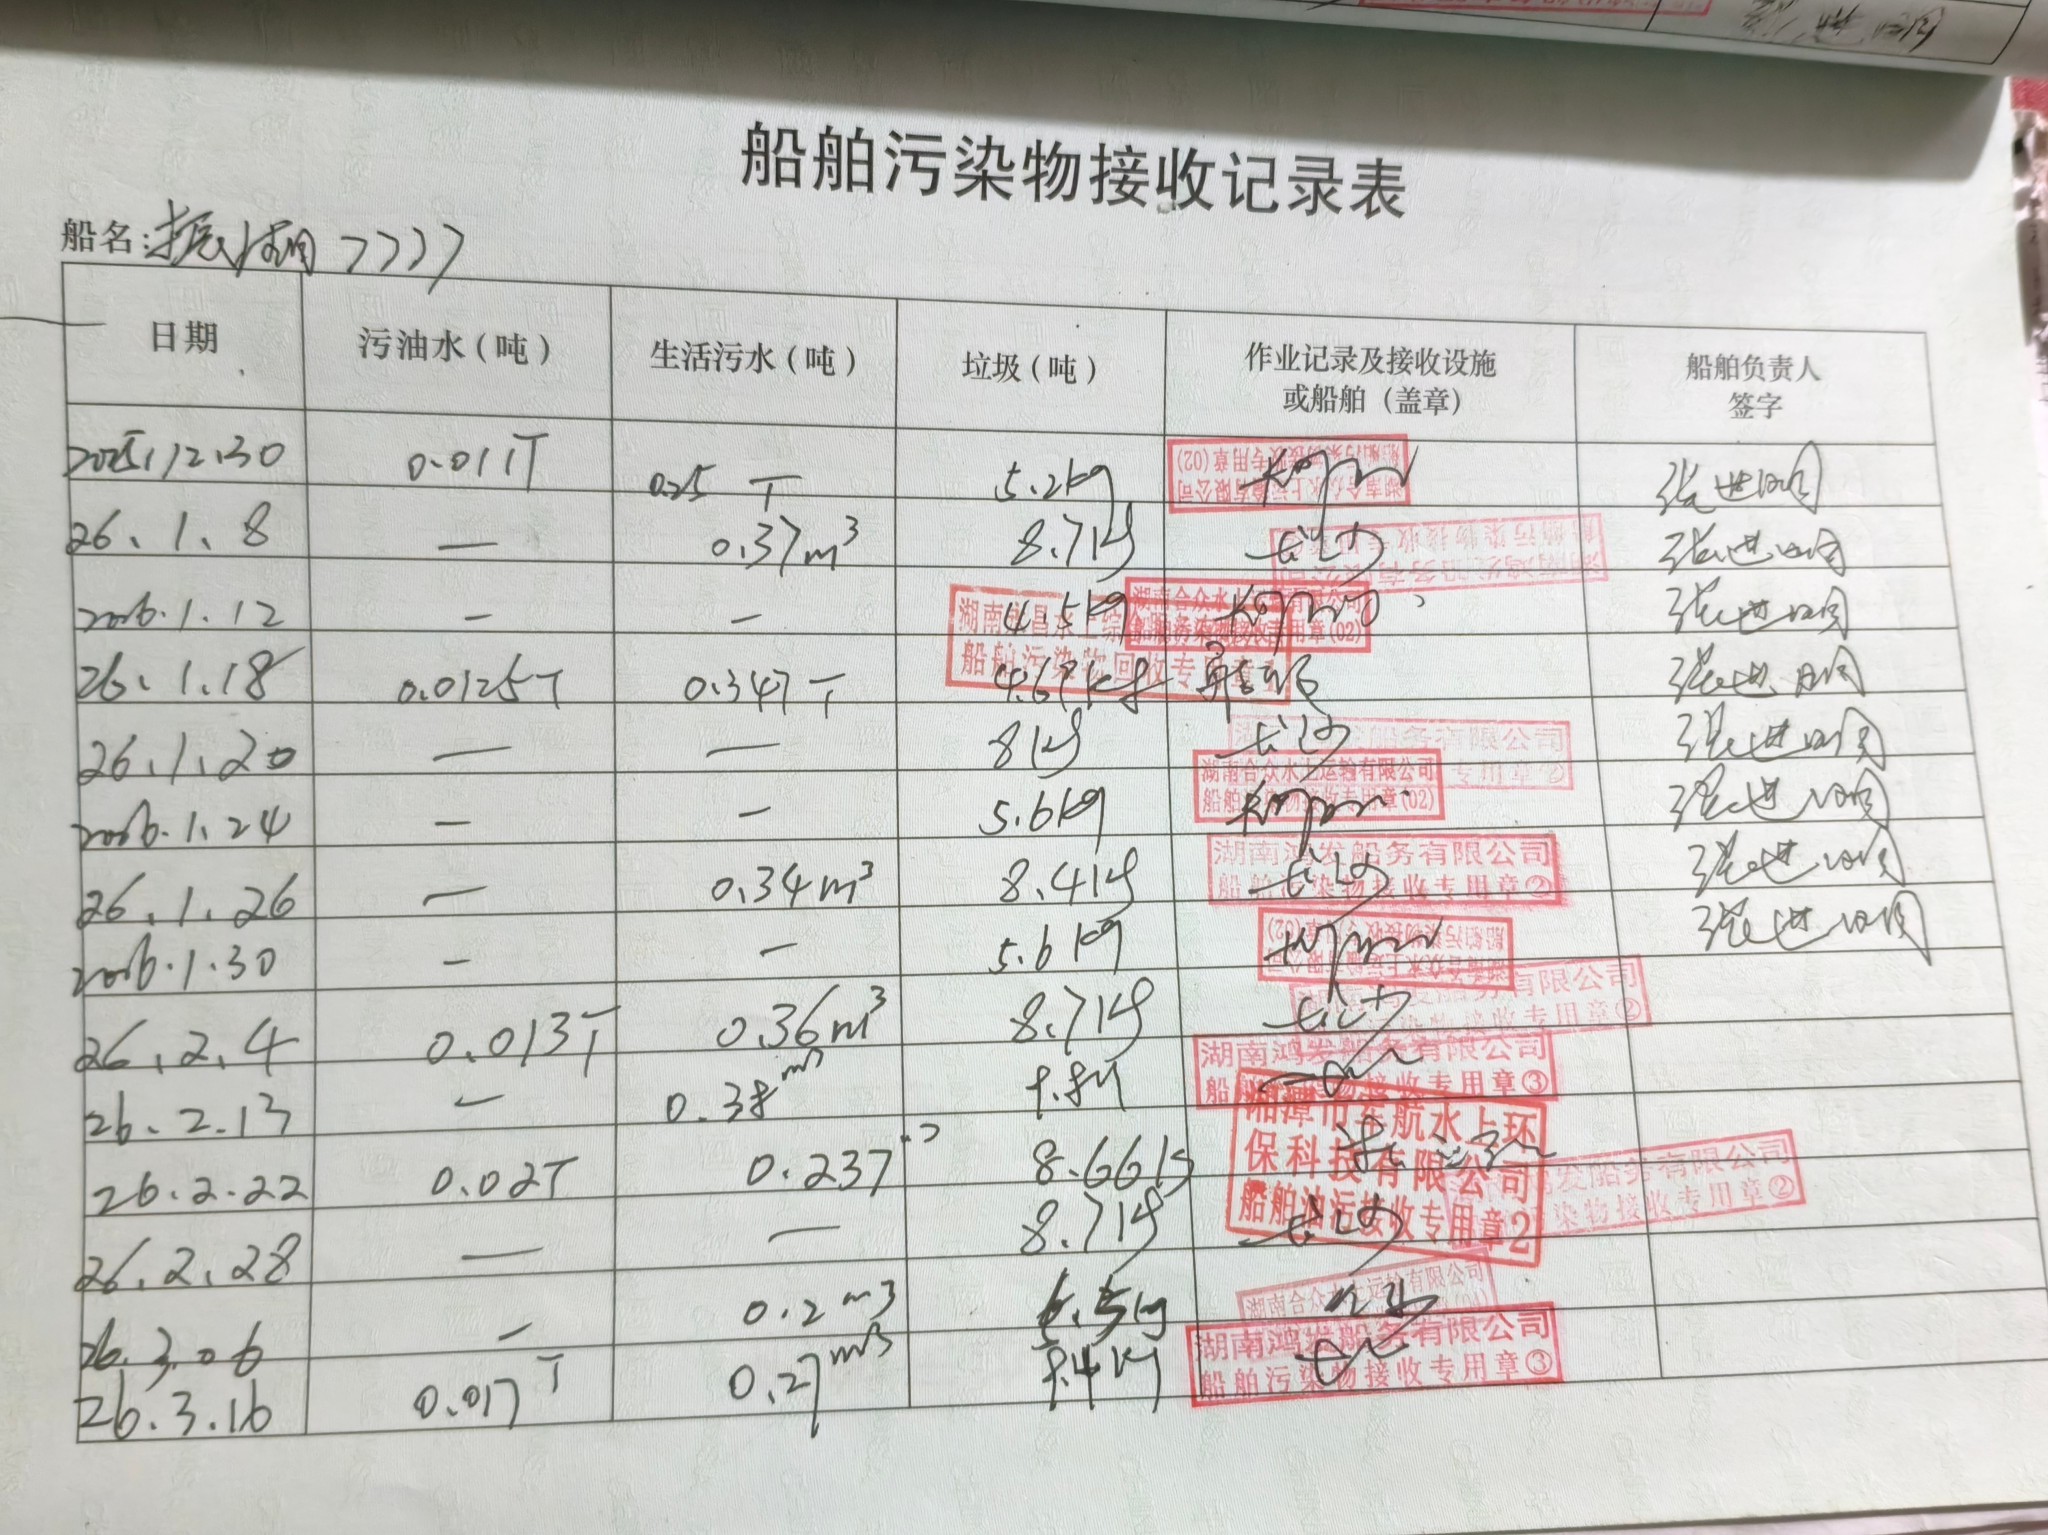 船舶污染物接收记录表
船名:振湖7777
日期 污油水(吨) 生活污水(吨) 垃圾(吨) 作业记录及接收设施或船舶(盖章) 船舶负责人签字
2025.12.30 0.011T 0.25 T 5.2kg
湖南合众水上运输有限公司
船舶污染物接收专用章(02)
26.1.8 — 0.37m³ 8.7kg 长沙
湖南鸿发船务有限公司
船舶污染物接收专用章
2026.1.12 - - 4.5kg
湖南合众水上运输有限公司
船舶污染物接收专用章(02)
26.1.18 0.0125T 0.347T 4.67kg
船舶污染物回收专用章
26.1.20 — — 8kg 长沙
船务有限公司
专用章②
2026.1.24 - - 5.6kg
湖南合众水上运输有限公司
船舶污染物接收专用章(02)
26.1.26 — 0.34m³ 8.4kg 长沙
湖南鸿发船务有限公司
船舶污染物接收专用章②
2026.1.30 - - 5.6kg
湖南合众水上运输有限公司
船舶污染物接收专用章(02)
26.2.4 0.013T 0.36m³ 8.7kg 长沙
湖南鸿发船务有限公司
污染物接收专用章②
26.2.13 - 0.38m³
湖南鸿发船务有限公司
船舶污染物接收专用章③
26.2.22 0.02T 0.237 8.66kg
湘潭市 航水上环
保科技有限公司
船舶油污接收专用章2
26.2.28 — — 8.7kg 长沙
鸿发船务有限公司
染物接收专用章②
26.3.06 - 0.2m3
湖南合众水上运输有限公司
26.3.16 0.017T 0.27m3
湖南鸿发船务有限公司
船舶污染物接收专用章③